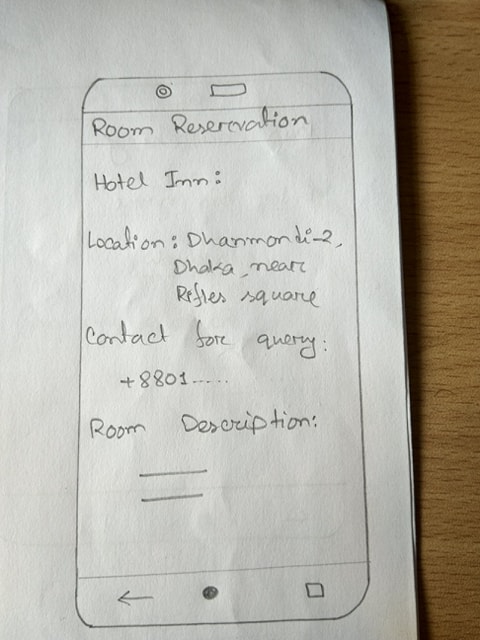 Room Reservation
Hotel Inn:
Location: Dhanmondi-2,
Dhaka, near
Rifles square
Contact for query:
+8801.....
Room Description: